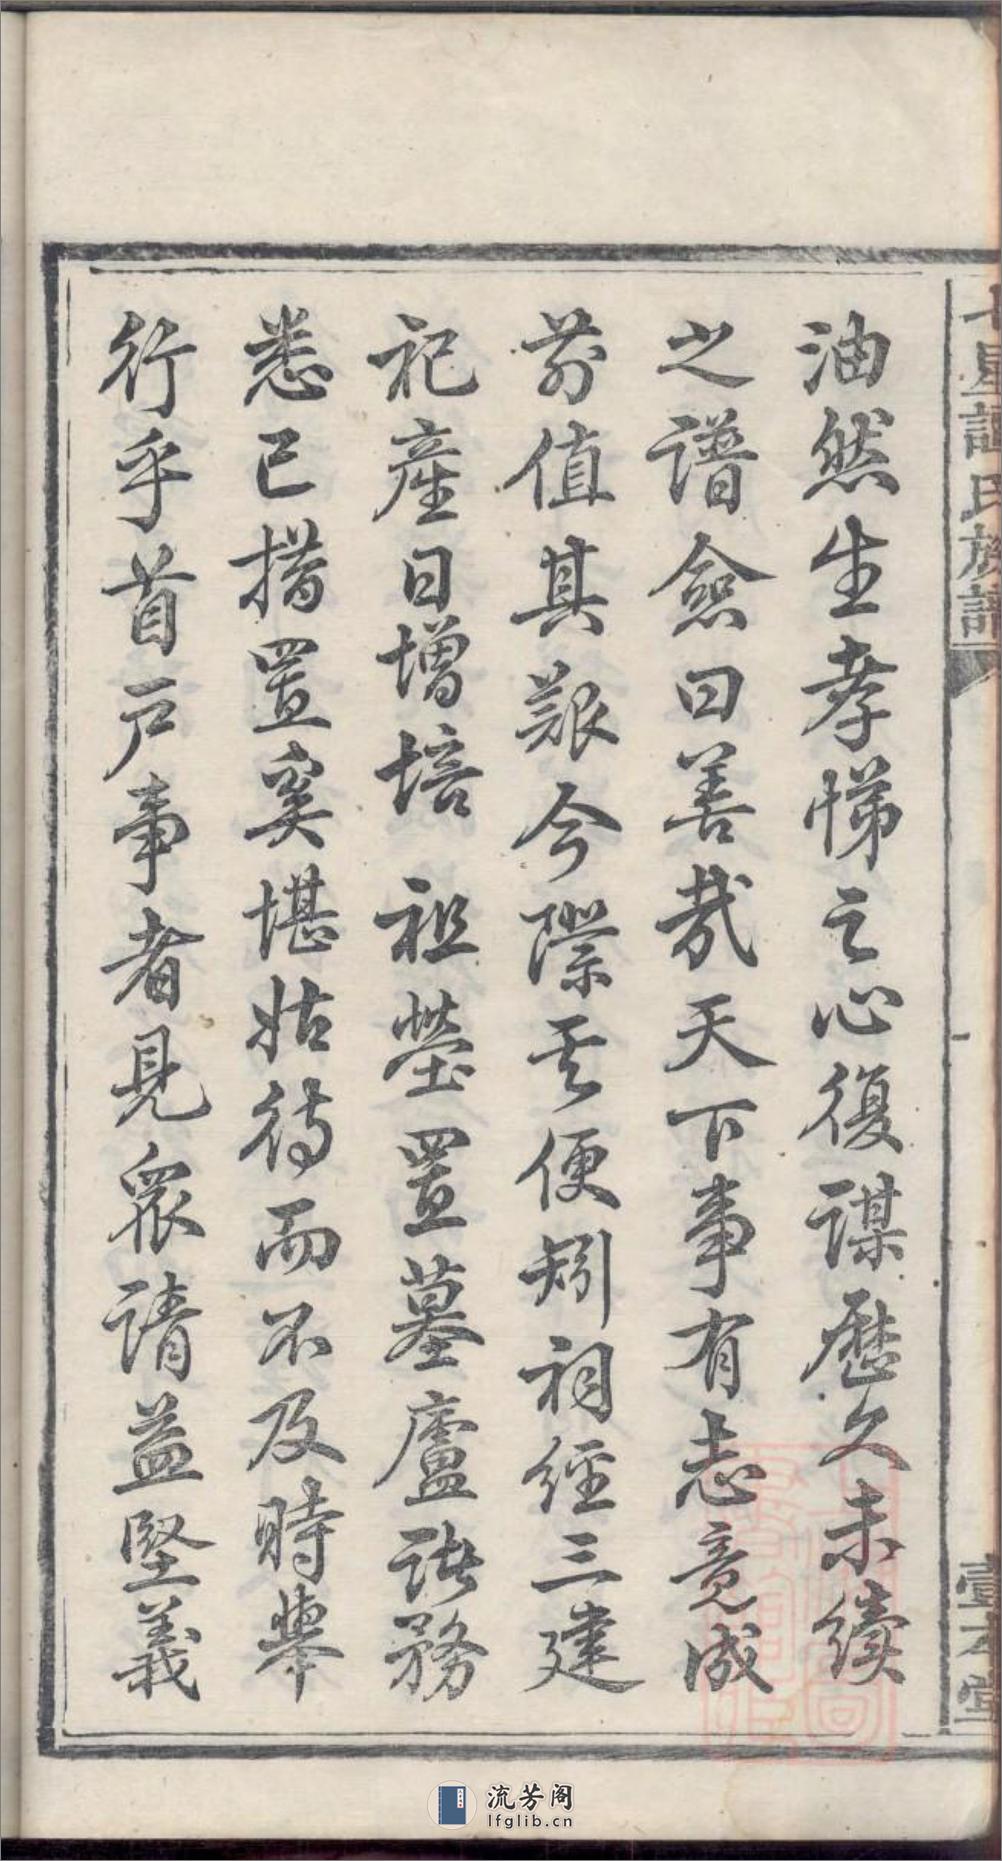 七星譚氏族譜
壹本堂
油然生孝悌之心復謀歷久未續
之譜僉曰善哉天下事有志竟成
前值其艱今際其便矧祠經三建
祀產日增培祖塋置墓廬諸務
悉已措置奚堪姑待而不及時舉
行乎首戶事者見眾請益堅義
流芳阁
lfglib.cn